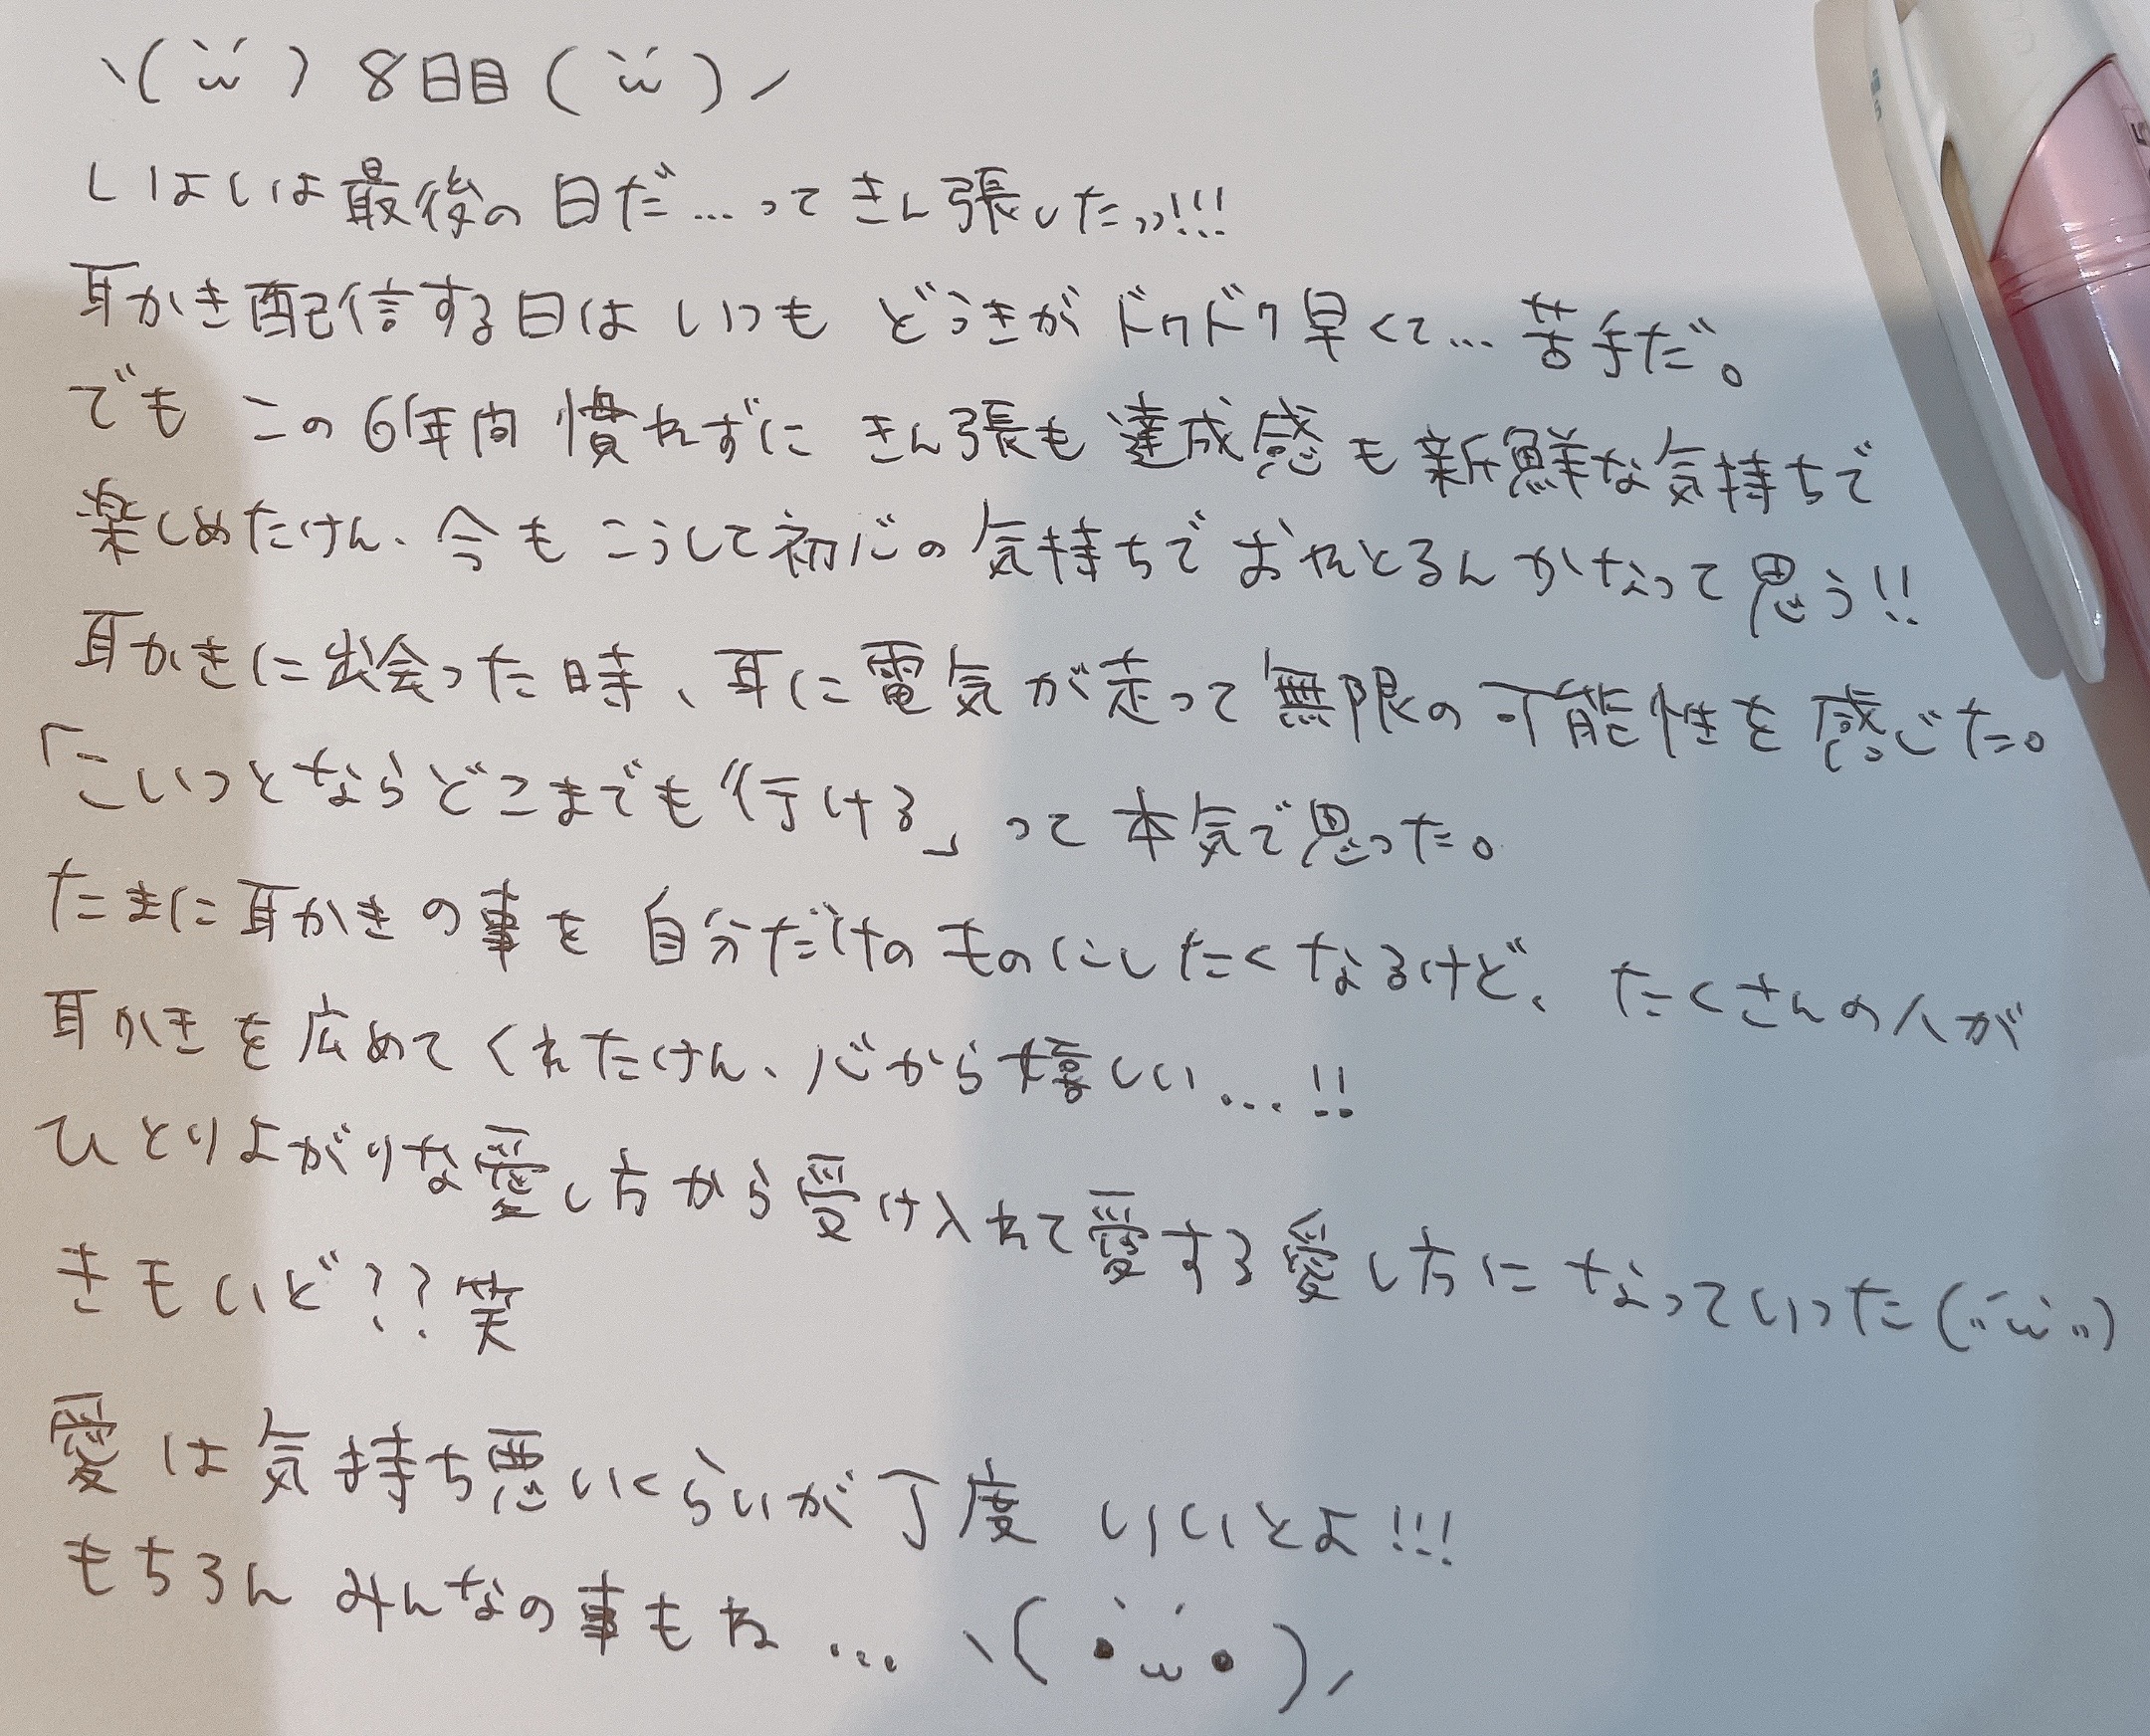 ヽ(｀ω´)8日目(｀ω´)ノ
いよいよ最後の日だ…ってきん張したっっ!!!
耳かき配信する日はいつもどうきがドクドク早くて…苦手だ。
でもこの6年間慣れずにきん張も達成感も新鮮な気持ちで
楽しめたけん、今もこうして初心の気持ちでおれとるんかなって思う!!
耳かきに出会った時、耳に電気が走って無限の可能性を感じた。
「こいつとならどこまでも行ける」って本気で思った。
たまに耳かきの事を自分だけのものにしたくなるけど、たくさんの人が
耳かきを広めてくれたけん、心から嬉しい…!!
ひとりよがりな愛し方から受け入れて愛する愛し方になっていった(〃´ω`〃)
きもいど??笑
愛は気持ち悪いくらいが丁度いいとよ!!!
もちろんみんなの事もね…ヽ(•̀ω•́)ノ